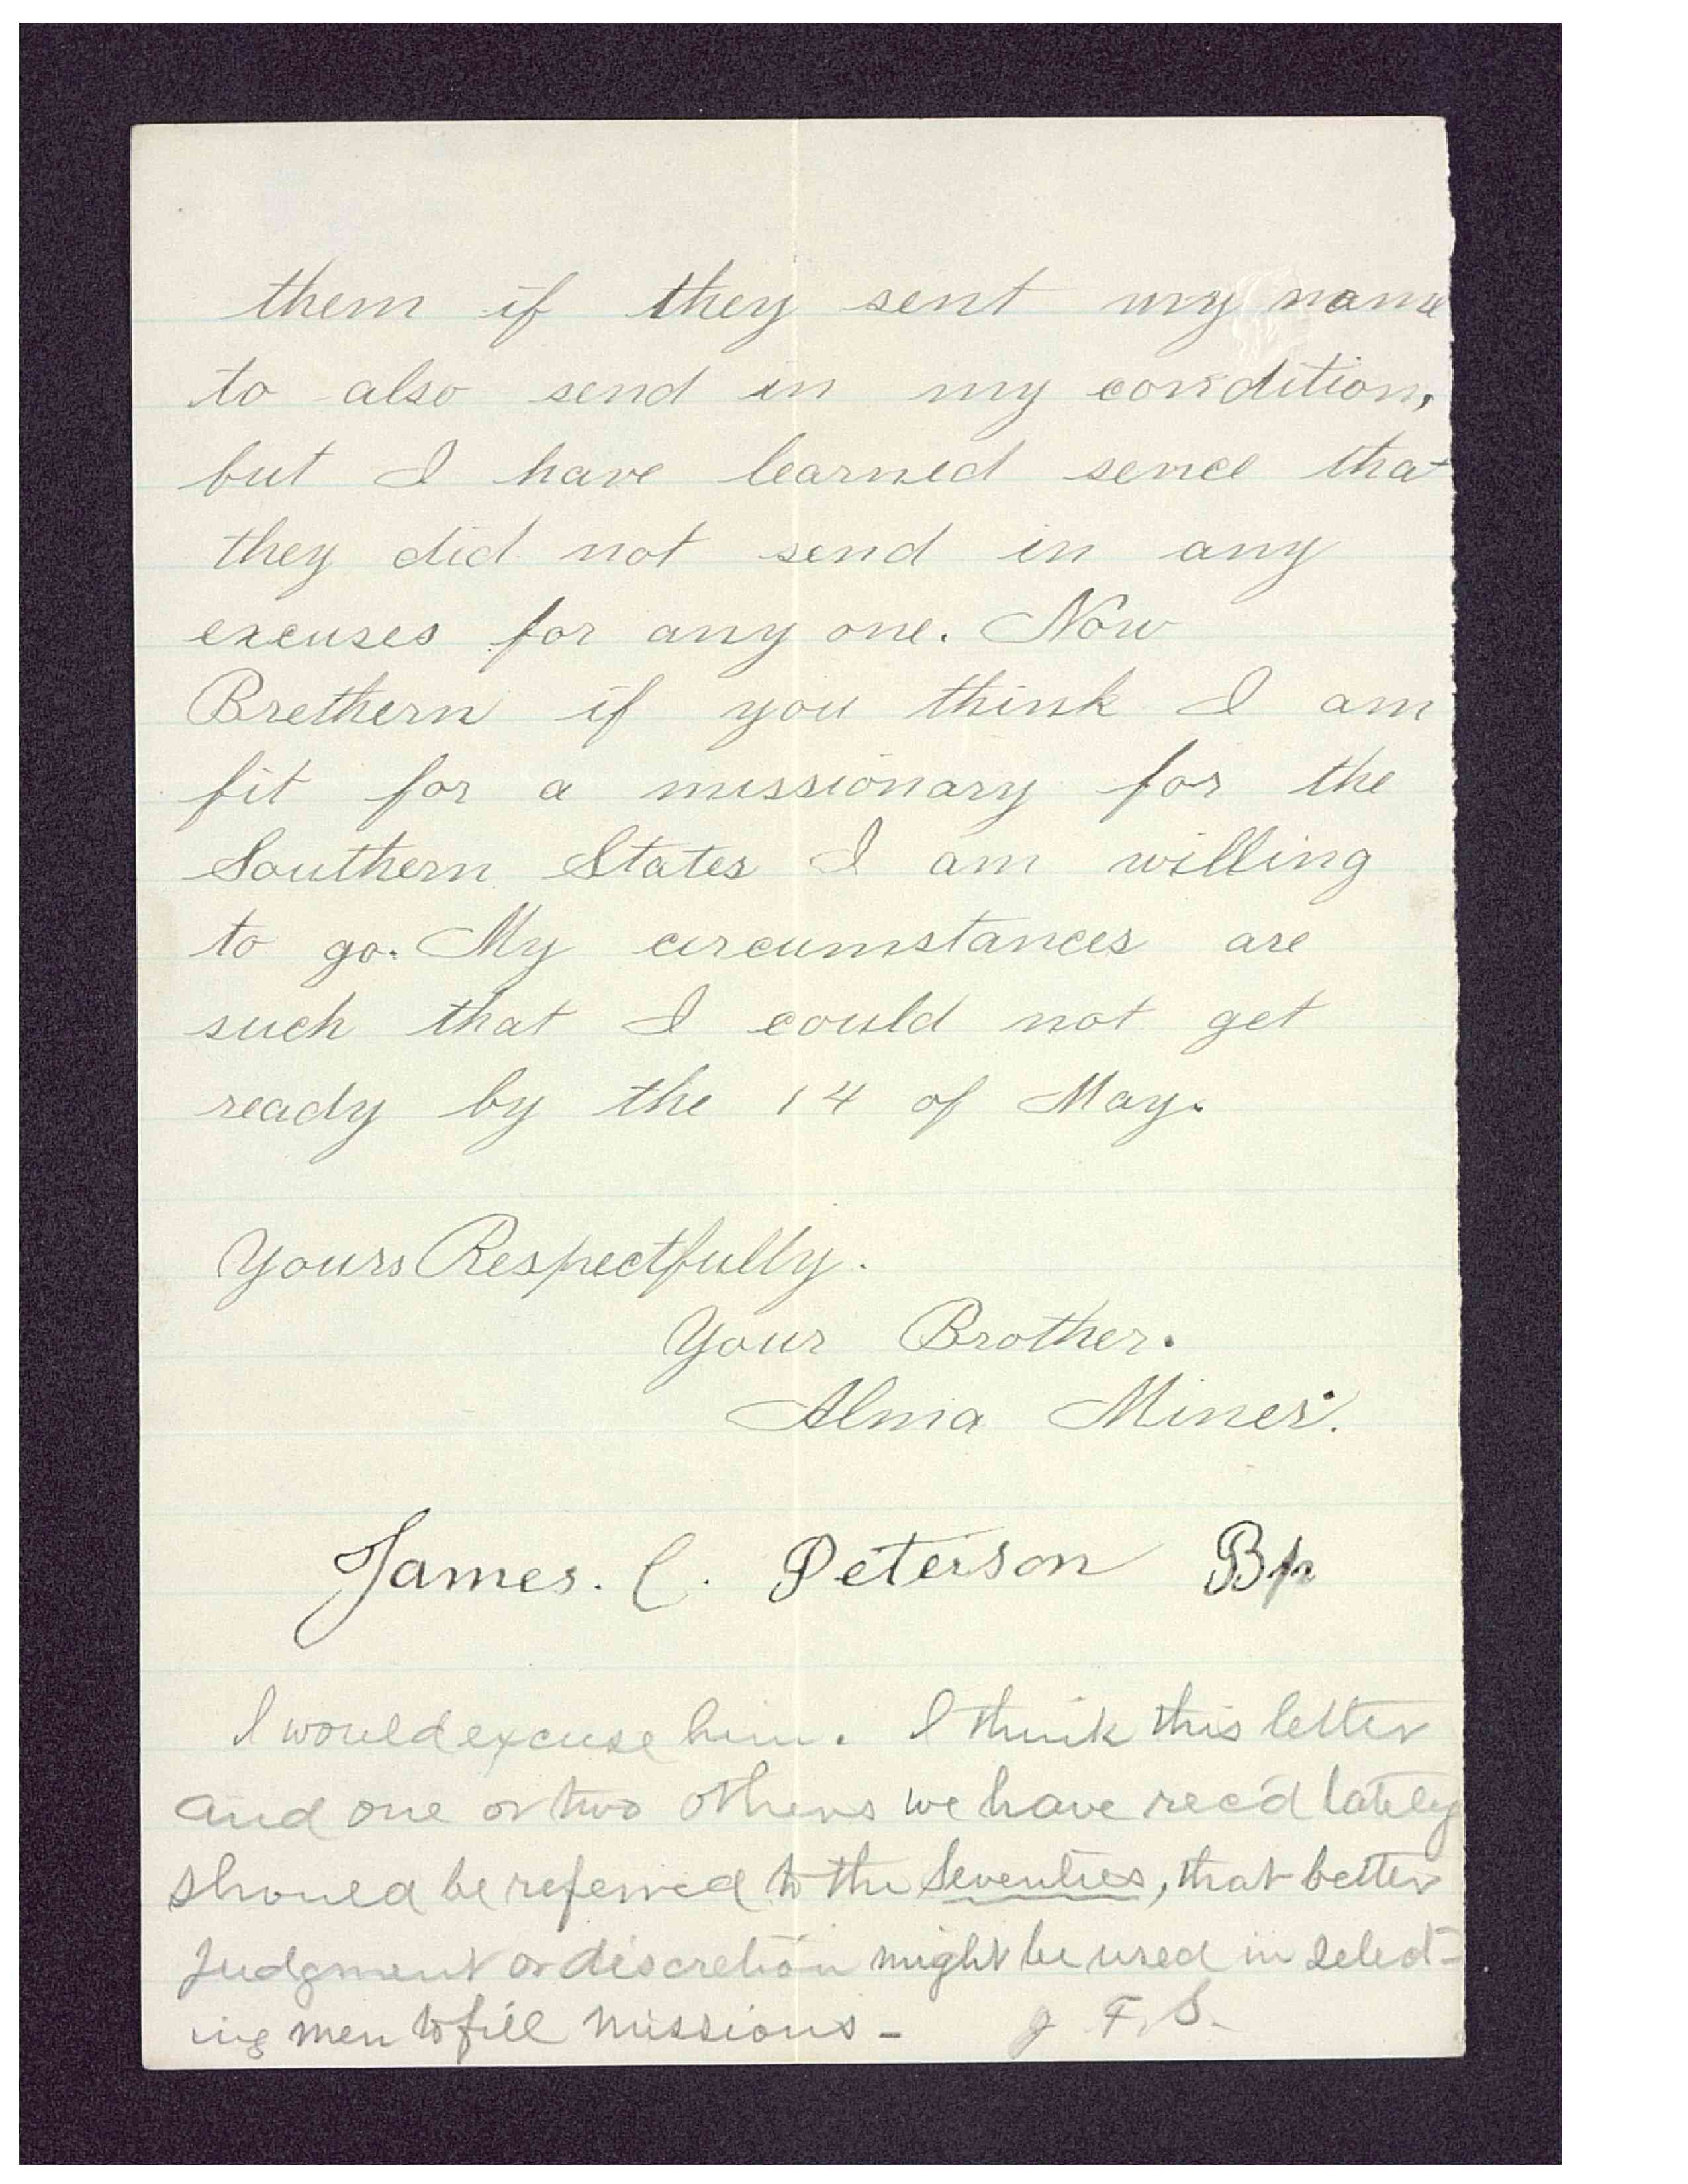 them if they sent my name
to also send in my condition,
but I have learned sence that
they did not send in any
excuses for any one. Now
Brethern if you think I am
fit for a missionary for the
Southern States I am willing
to go. My circumstances are
such that I could not get
ready by the 14 of May.
Yours Respectfully.
Your Brother.
Alma Miner.
James. C. Peterson Bp
I would excuse him. I think this letter
and one or two others we have rec'd lately
should be referred to the Seventies, that better
judgment or discretion might be used in select-
ing men to fill missions -   J. F. S.